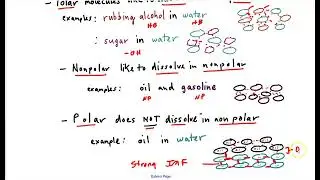 - Polar molecules like to dissolve in
examples: rubbing alcohol in water
HB HB
: sugar in water
-OH
- Nonpolar like to dissolve in nonpolar
examples: oil and gasoline
NP NP
- Polar does NOT dissolve in non polar
example: oil in water
Strong IMF